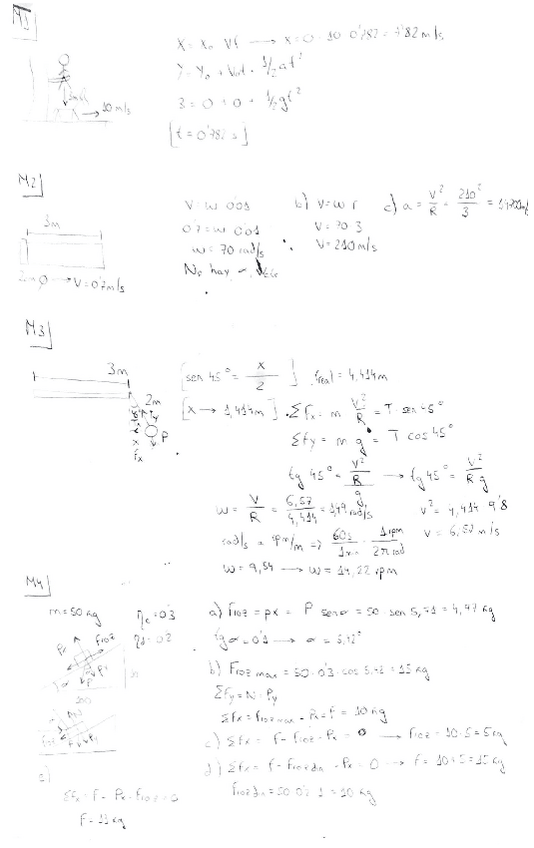 M1
X = X₀ Vt → x = 0 · 10 0'782 = 7'82 m/s
Y = Y₀ + V₀t · 1/2 at²
10 m/s
3 = 0 + 0 + 1/2 gt²
[t = 0'782 s]
M2
3m
V = 0'7 m/s
V = ω 0'01
0'7 = ω 0'01
ω = 70 rad/s
No hay
b) V = ω r
V = 70 3
V = 210 m/s
c) a = V²/R = 210²/3 =
M3
3m
2m
P
Fx
[sen 45° = x/2] r real = 4,414m
[x → 1,414m] · ΣFx = m V²/R = T · sen 45°
ΣFy = m g = T cos 45°
tg 45° = V²/R / g → tg 45° = V²/R g
ω = V/R = 6,57/4,414 = 1,49 rad/s
v² = 4,414 9'8
v = 6,57 m/s
rad/s = rpm/m => 60s/1m · 1rpm/2π rad
ω = 9,54 → ω = 14,22 rpm
M4
m = 50 kg
ηe = 0'3
ηd = 0'2
a) Froz = px = P sen α = 50 · sen 5,71 = 4,97 kg
tg α = 0'1 → α = 5,72°
b) Froz max = 50 · 0'3 · cos 5,72 = 15 kg
ΣFy = N · Py
ΣFx = Froz max - Px = F = 10 kg
c) ΣFx = F - Froz - Px = 0 → Froz = 10 - 5 = 5 kg
d) ΣFx = F - Froz dn - Px = 0 → F = 10 + 5 = 15 kg
Froz dn = 50 0'2 1 = 10 kg
ΣFx = F - Px - Froz = 0